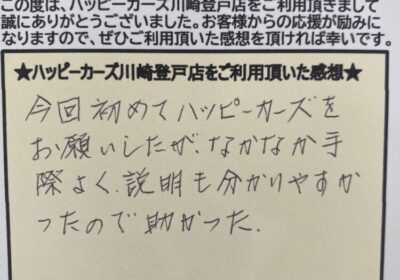 この度は、ハッピーカーズ川崎登戸店をご利用頂きまして
誠にありがとうございました。お客様からの応援が励みに
なりますので、ぜひご利用頂いた感想を頂ければ幸いです。
★ハッピーカーズ川崎登戸店をご利用頂いた感想★
今回初めてハッピーカーズを
お願いしたが、なかなか手
際よく、説明も分かりやすか
ったので助かった.